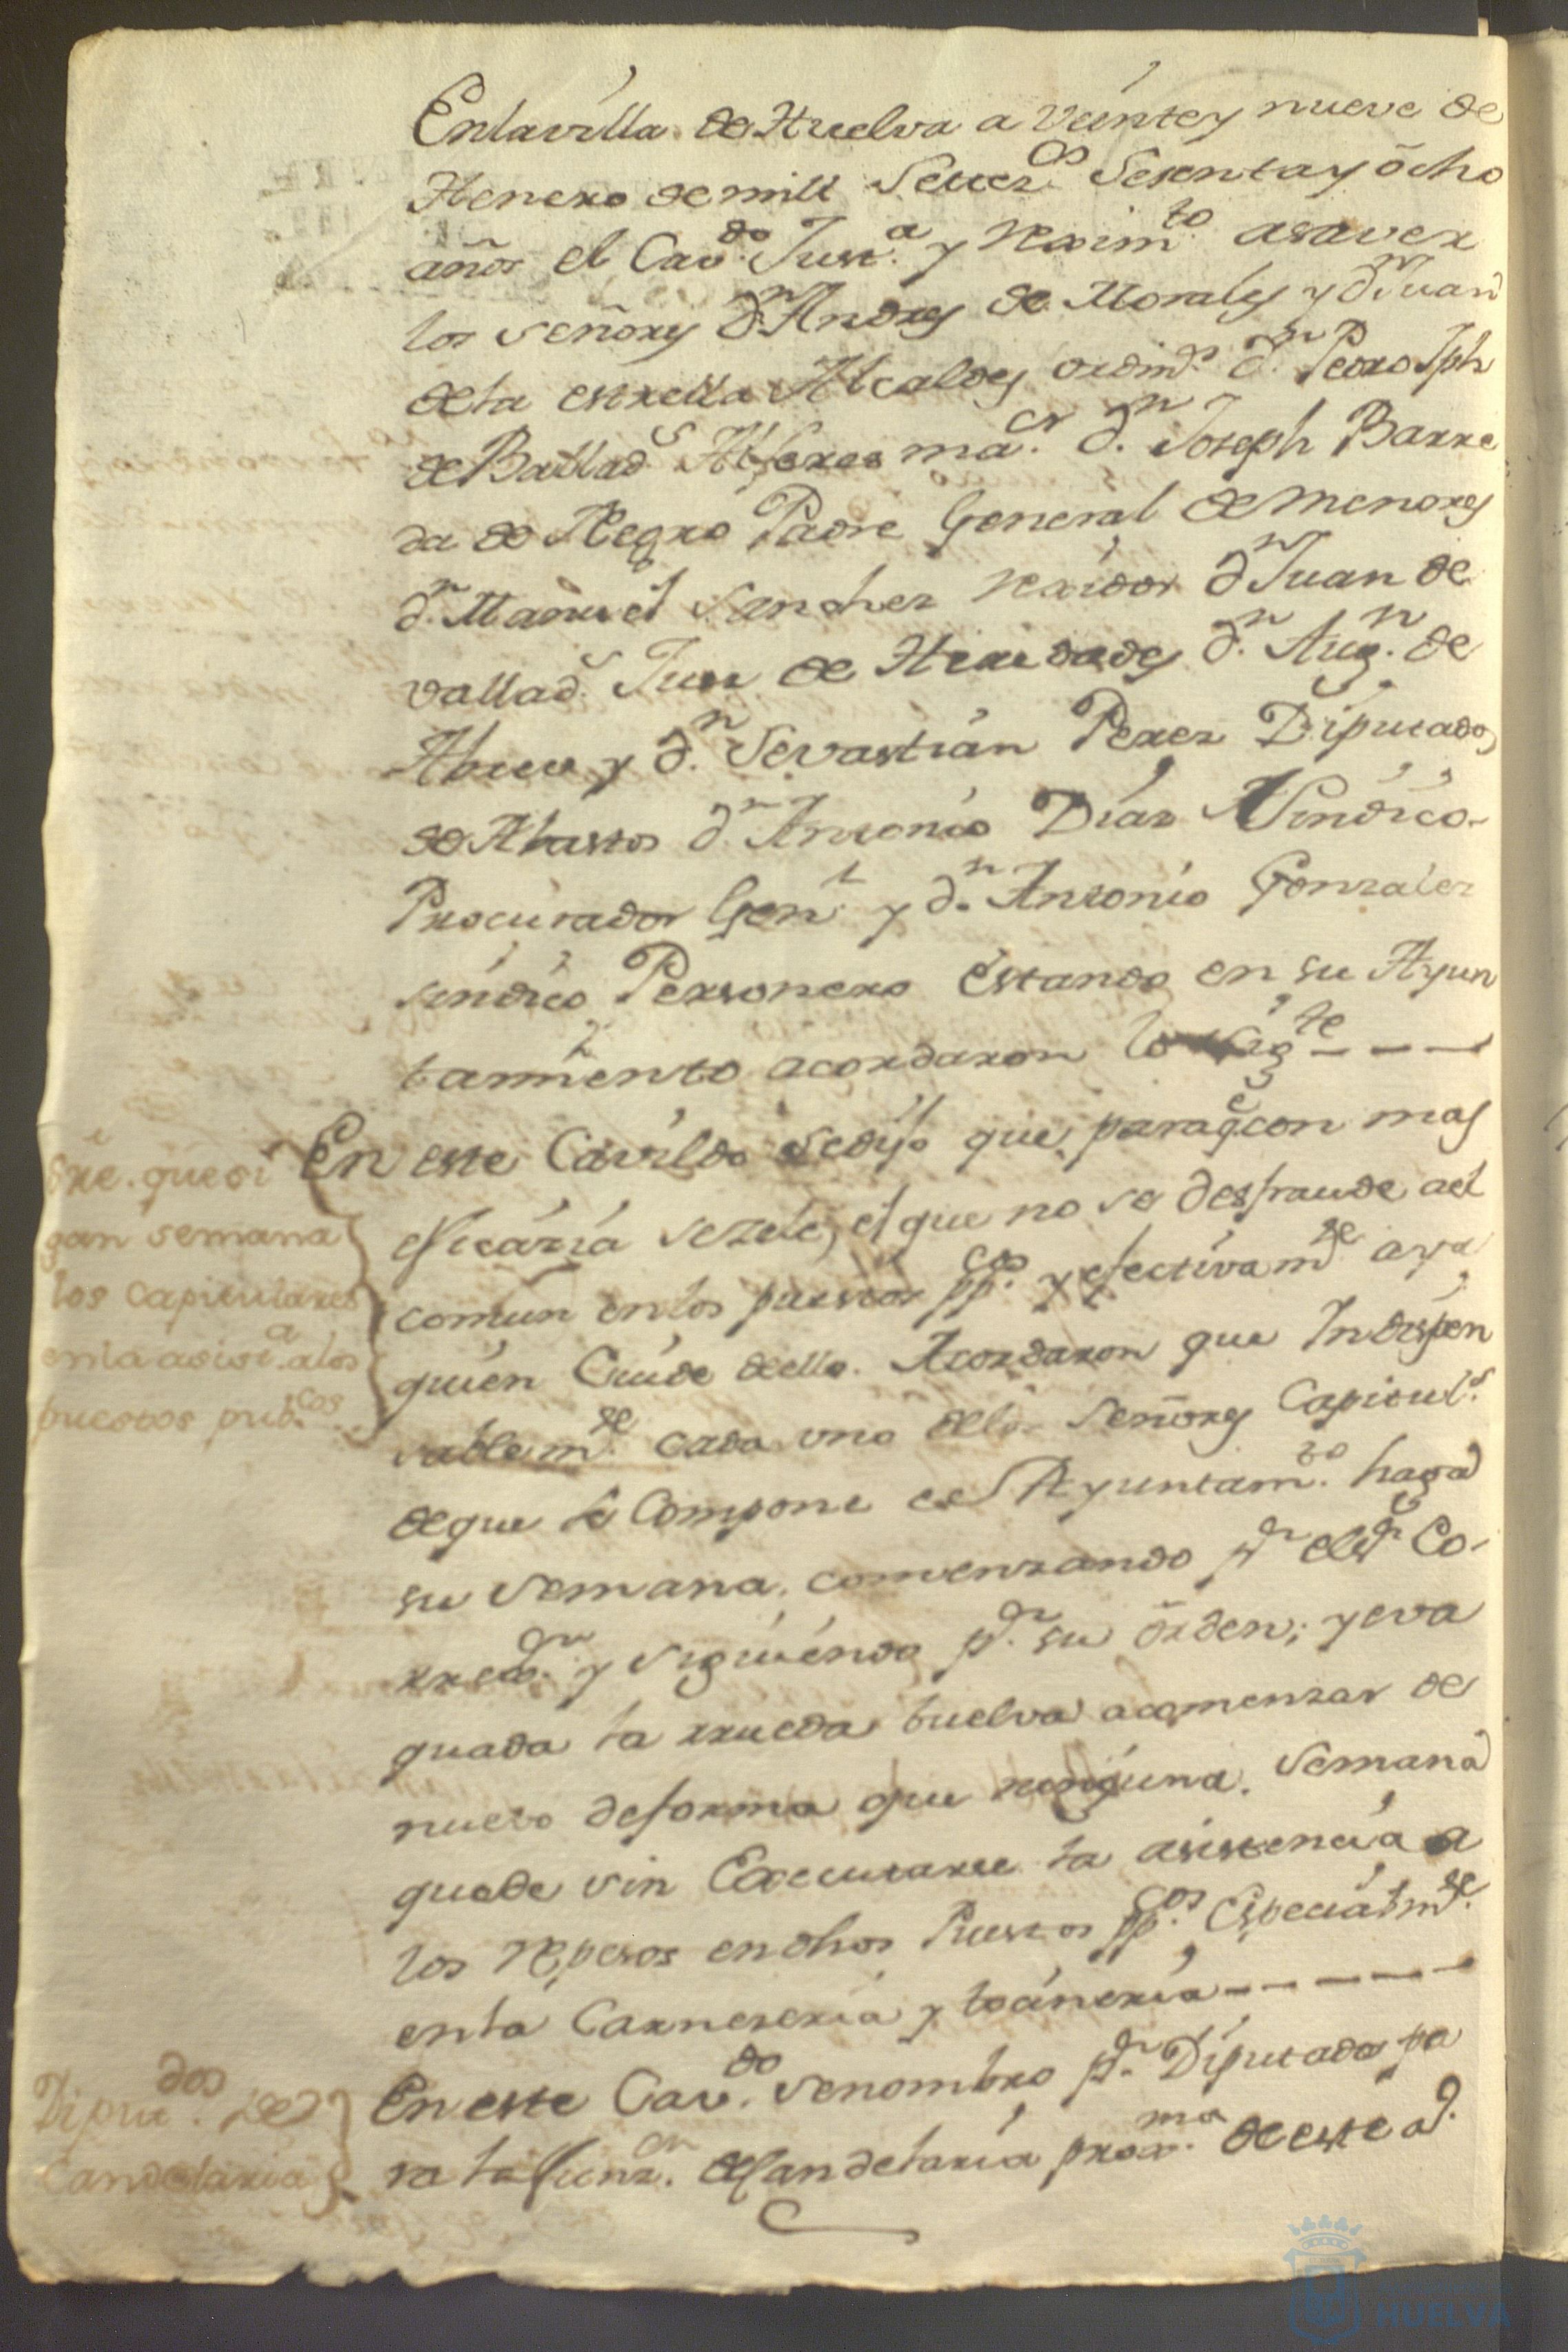 En la villa de Huelva a Veinte y nueve de
Henero de mill Setecos Sesenta y ocho
años el Cavdo Justa y Reximto asaver
los señores Dn Andres de Morales y Dn Juan
de la estrella Alcaldes ordins Dn Pedro Jph
de Vallads Alferes maor Dn Joseph Barre
da de Negro Padre General de menores
Dn Manuel Sanches rexidor Dn Juan de
vallads Juez de Heredades Dn Augn de
Abreo y Dn Sevastián Perez Diputados
de Abastos Dn Antonio Díaz Sindico
Procurador Genl y Dn Antonio Gonzalez
sindico Personero estando en su Ayun
tamiento acordaron lo sigte
Sre. que si
gan semana
los capitulares
en la asista a los
puestos pubcos
En este Cavildo se dijo que para q con mas
eficázia se zele, el que no se desfraude a el
comun en los puestos ppcos y efectivamte aya
quien Cuide dello. Acordaron que Indispen
sablemte cada uno de los Señores Capituls
de que se Compone este Ayuntamto haga
su semana, comenzando pr el Sr Co-
rregor y siguiendo pr su órden; y eva
quada la rrueda buelva a comenzar de
nuevo de forma que ninguna semana
quede sin Executarse la asistencia a
los Repesos en dhos Puestos ppcos Especialmte
en la Carneseria y tocineria
Dipudos de
Candelaria
En este Cavdo se nombro pr Diputados pa
ra la funzn de Candelaria proxma de este ad.
HUELVA